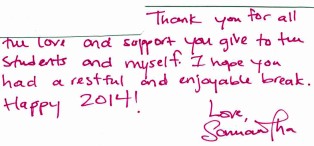 Thank you for all
the love and support you give to the
students and myself. I hope you
had a restful and enjoyable break.
Happy 2014!
Love,
Samantha